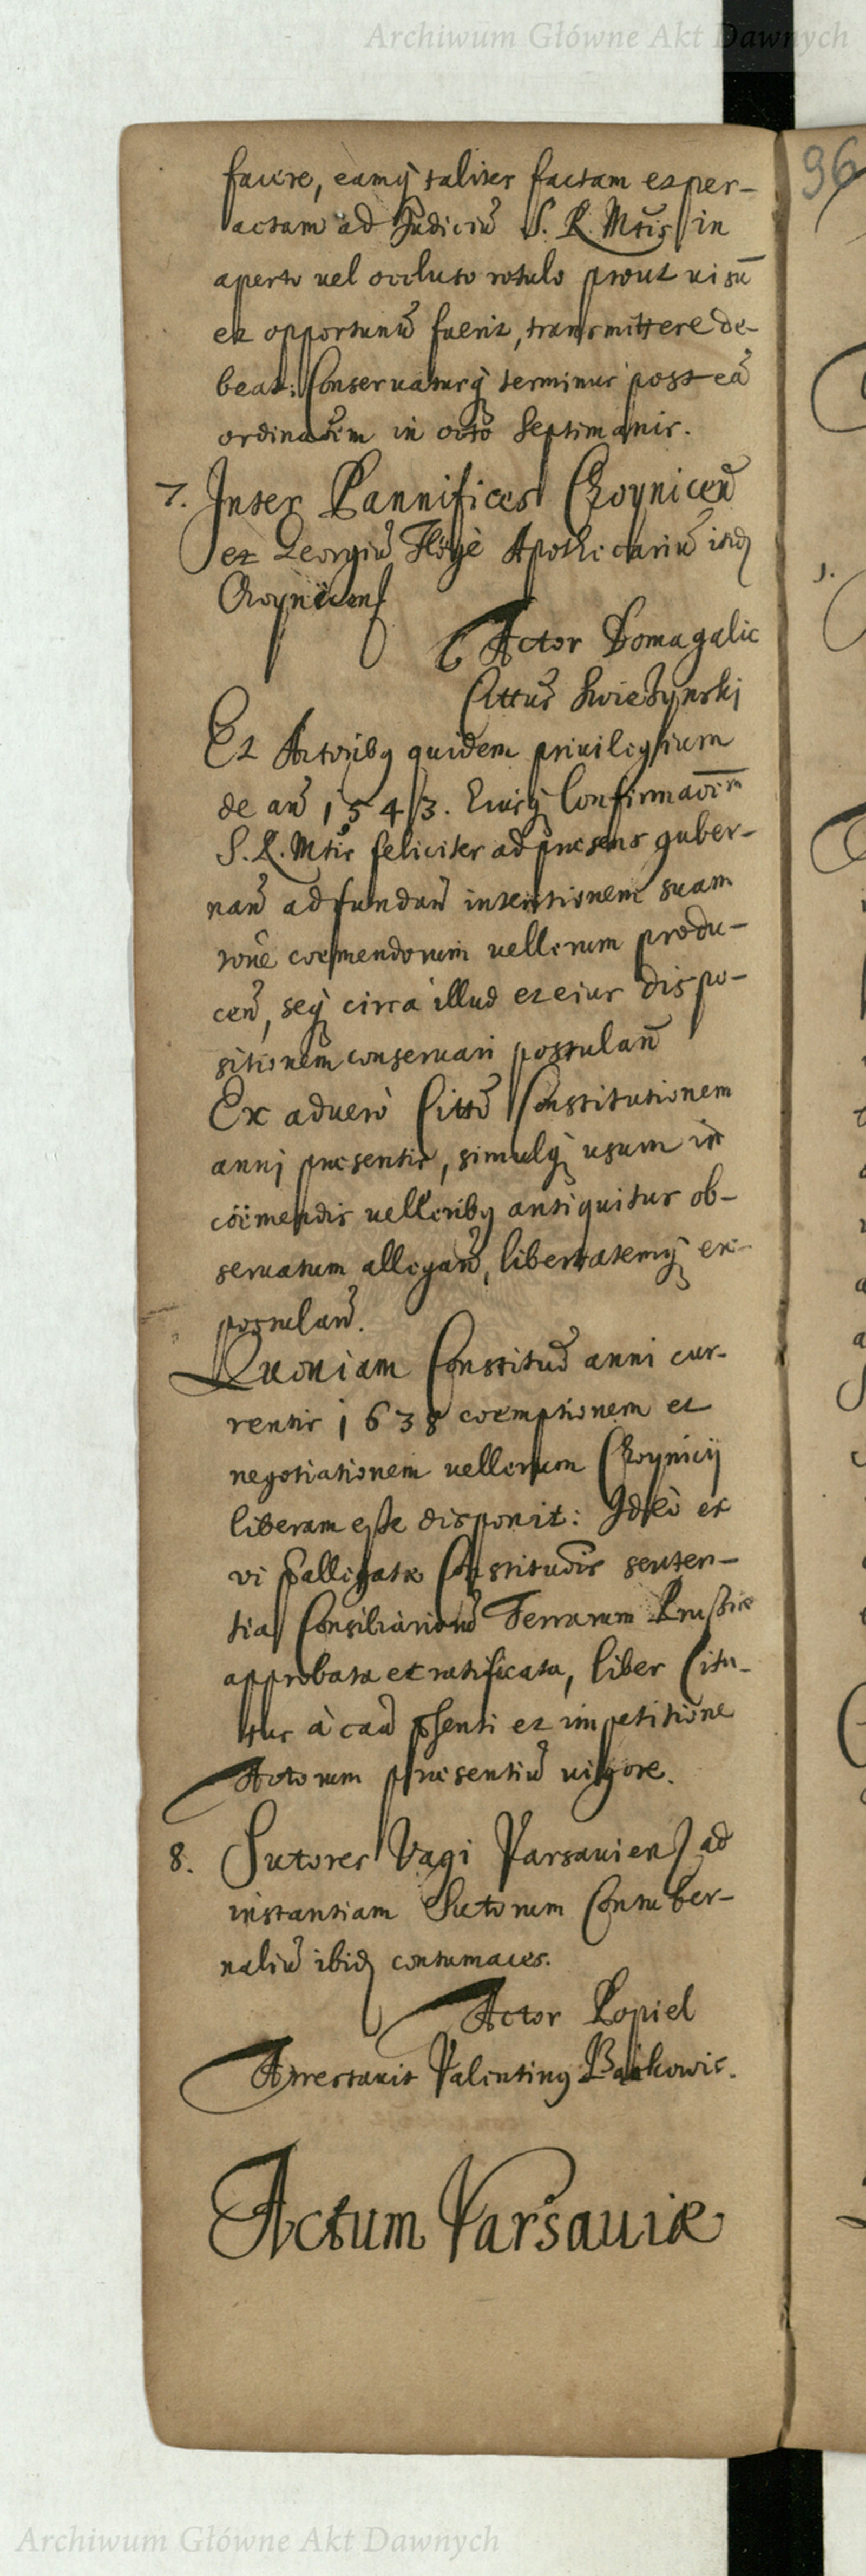 Archiwum Główne Akt Dawnych
96
facere, eamq̃ taliter factam et per-
actam ad Judiciũ S. R. Mtis in
aperto uel occluso rotulo prout uisũ
et opportunũ fuerit, transmittere de-
beat: Conseruaturq̃ terminus post eã
ordinatm̃ in octo Septimanis.
7. Inter Pannifices Choynicen̄
et Georgiũ Apothecariũ ibid
Choynicens
Actor Domagalic
Cittus̃ Swiezynski
Et Actoribq quidem priuilegium
de an̄ 1543. Eiusq̃ Confirmaõem
S. R. Mtis feliciter ad præsens guber-
nan̄ ad fundan̄ intentionem suam
rone coemendorum vellerum produ-
cen̄, seq̃ circa illud et eius dispo-
sitionem conseruari postulan̄
Ex aduerò Citto Constitutionem
anni præsentis, simulq̃ usum in
coëmendis velleribq antiquitus ob-
seruatum allegan̄, libertatemq̃ ex-
postulan̄.
Quoniam Constituõ anni cur-
rentis 1638 coemptionem et
negotiationem vellerum Choynicij
liberam esse disponit: Ideò ex
vi pallegatæ Constitu͠ois senten-
tia Consiliariorũ Terrarum Prussiæ
approbata et ratificata, liber Cita-
tus à cau͠ pñsenti et impetitione
Actorum præsentiũ uigore.
8. Sutores Vagi Varsauien ad
instantiam Sutorum Contuber-
naliũ ibid contumaces.
Actor Popiel
Arrestauit Valentinq Baikowic.
Actum Varsauiæ
Archiwum Główne Akt Dawnych